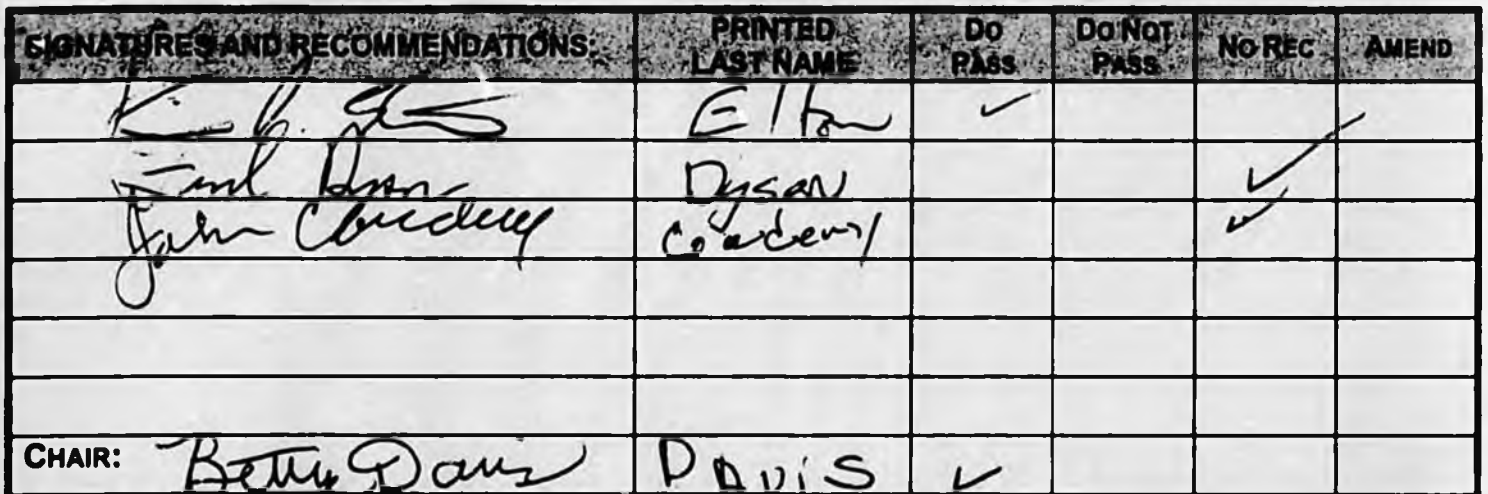 SIGNATURES AND RECOMMENDATIONS: PRINTED LAST NAME DO PASS DO NOT PASS NO REC AMEND
Elton ✓
Dyson ✓
John Cowdery Cowdery ✓
CHAIR: Betty Davis DAVIS ✓